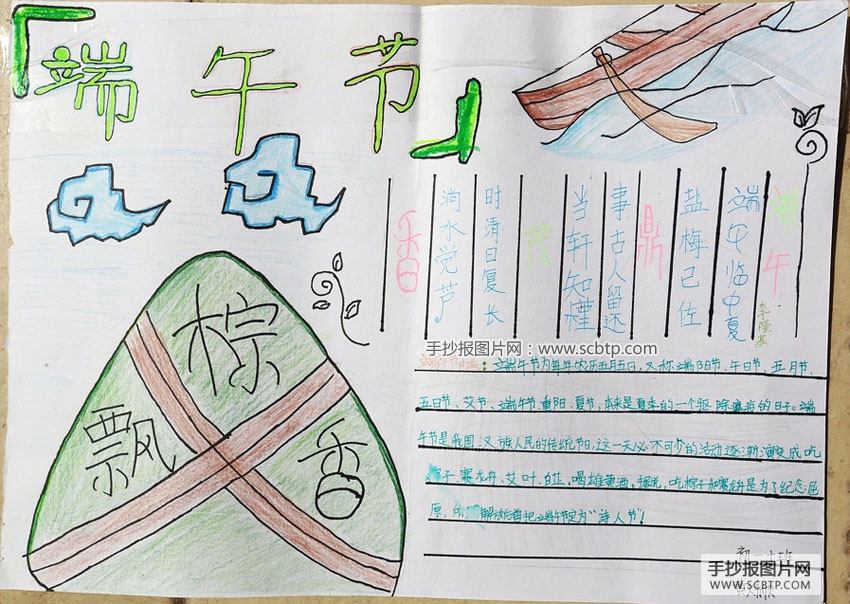 『端午节』
端午
李隆基
端午临中夏
盐梅己佐
鼎
事古人留
当轩知
茂
时清日复长
泂水觉芦
香
棕
飘香
手抄报图片网：www.scbtp.com
：端午节为每年农历五月五日，又称端阳节、午日节、五月节、
五日节、艾节、端午节、重阳、夏节，本来是夏季的一个驱除瘟疫的日子。端
午节是我国汉族人民的传统节日，这一天必不可少的活动逐渐演变成吃
粽子，赛龙舟、艾叶、白芷、喝雄黄酒。据说，吃粽子和赛龙舟是为了纪念屈
原，所以解放后曾把端午节定为“诗人节”！
初一十班
手抄报图片网
WWW.SCBTP.COM